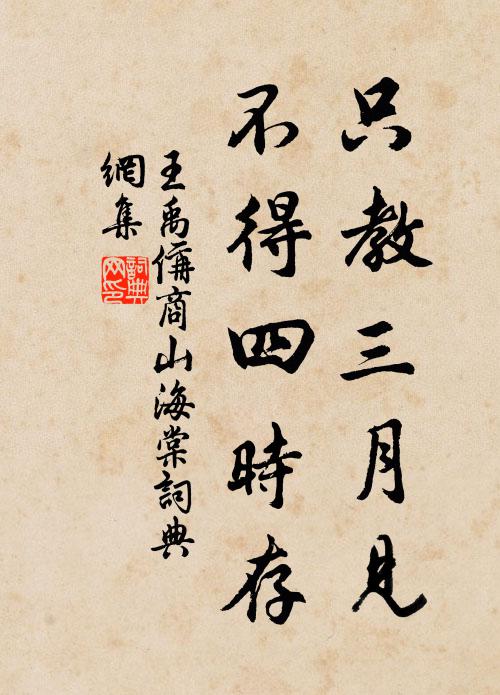 只教三月見
不得四時存
王禹偁商山海棠詞典
網集
詞典
網印